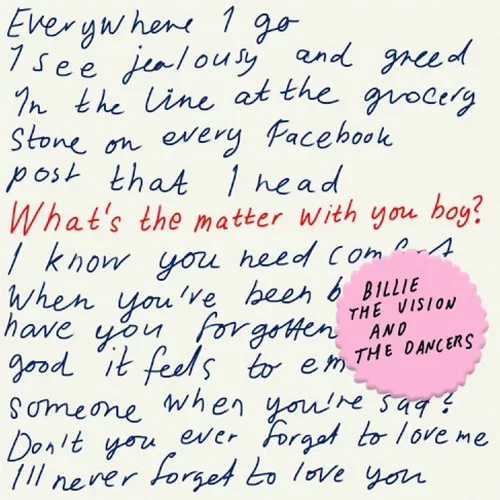 Everywhere I go
I see jealousy and greed
In the line at the grocery
Store on every Facebook
post that I read
What's the matter with you boy?
I know you need
When you've been
have you forgotten
good it feels to
someone when you're sad?
Don't you ever forget to love me
I'll never forget to love you
BILLIE
THE VISION
AND
THE DANCERS